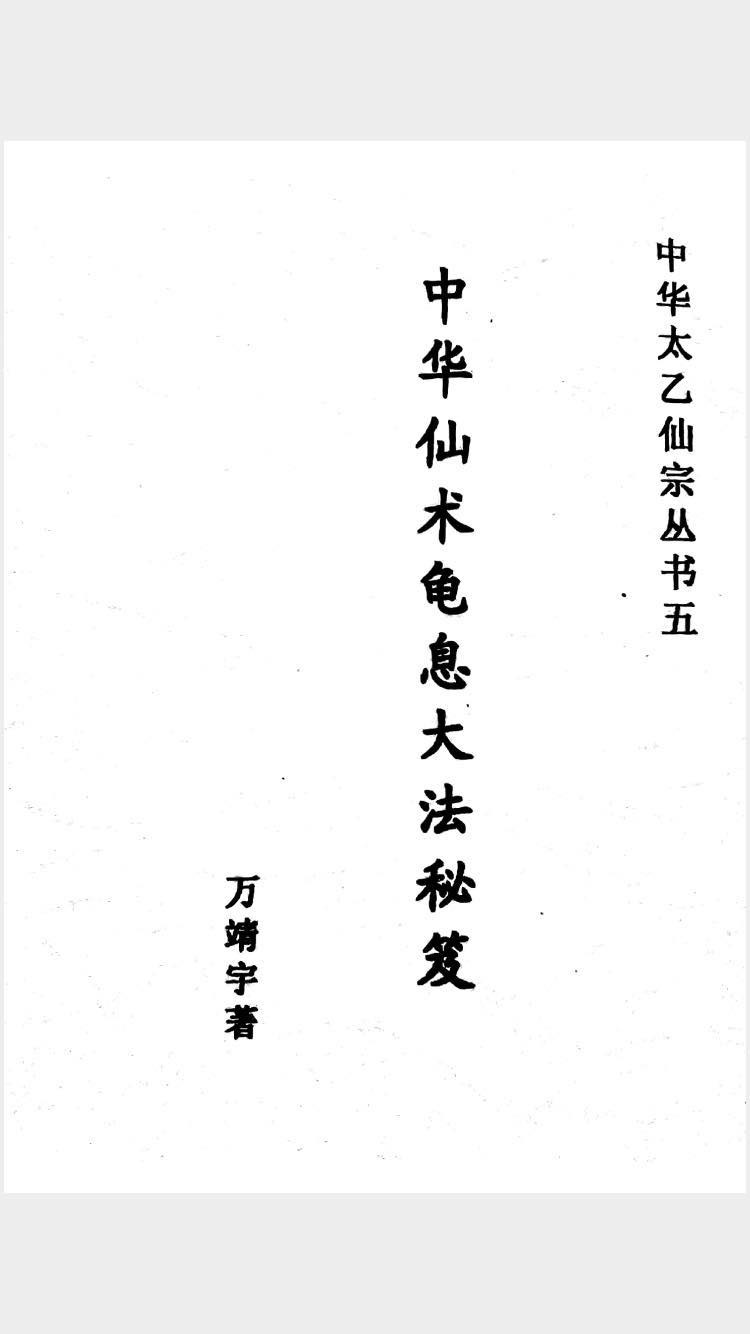 中华太乙仙宗丛书五
中华仙术龟息大法秘笈
万靖宇著